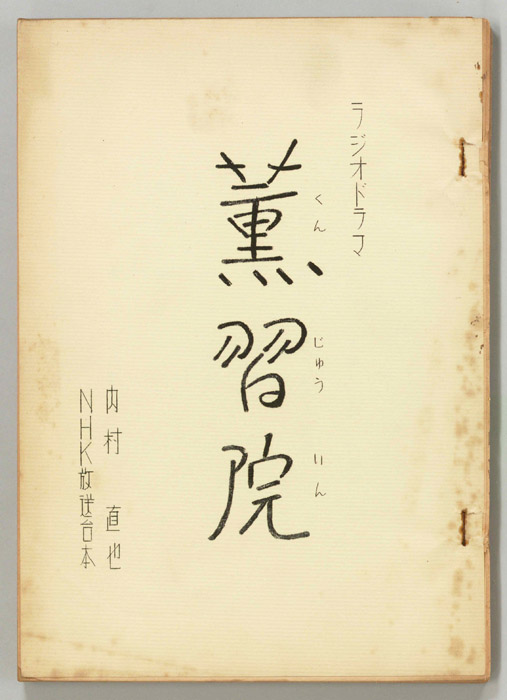 ラジオドラマ
薫習院
くん じゅう いん
内村 直也
NHK放送台本